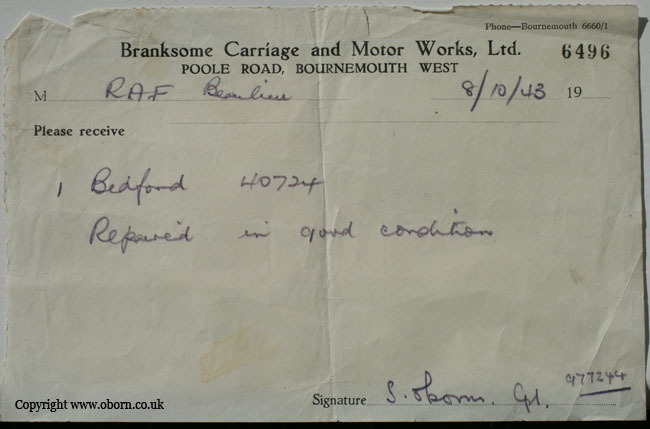 Phone—Bournemouth 6660/1
Branksome Carriage and Motor Works, Ltd. 6496
POOLE ROAD, BOURNEMOUTH WEST
M RAF Beaulieu 8/10/43 19
Please receive
1 Bedford 40724
Repaired in good condition
977244
Signature S. Oborn. Cpl.
Copyright www.oborn.co.uk